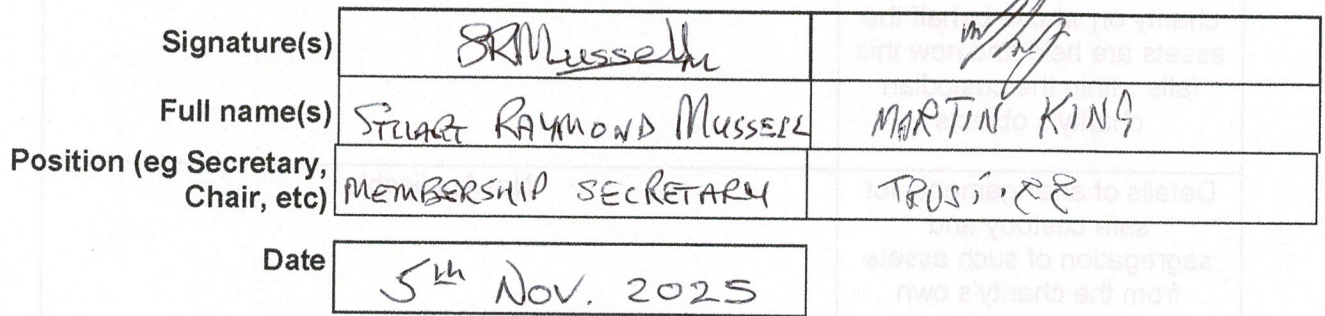 Signature(s) SRMussell
Full name(s) STUART RAYMOND MUSSELL MARTIN KING
Position (eg Secretary,
Chair, etc) MEMBERSHIP SECRETARY TRUSTEE
Date 5th Nov. 2025